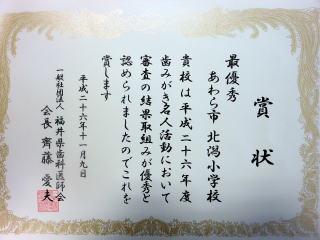 賞状
最優秀
あわら市 北潟小学校
貴校は平成二十六年度
歯みがき名人活動において
審査の結果取組みが優秀と
認められましたのでこれを
賞します
平成二十六年十一月九日
一般社団法人 福井県歯科医師会
会長 齊藤 愛夫